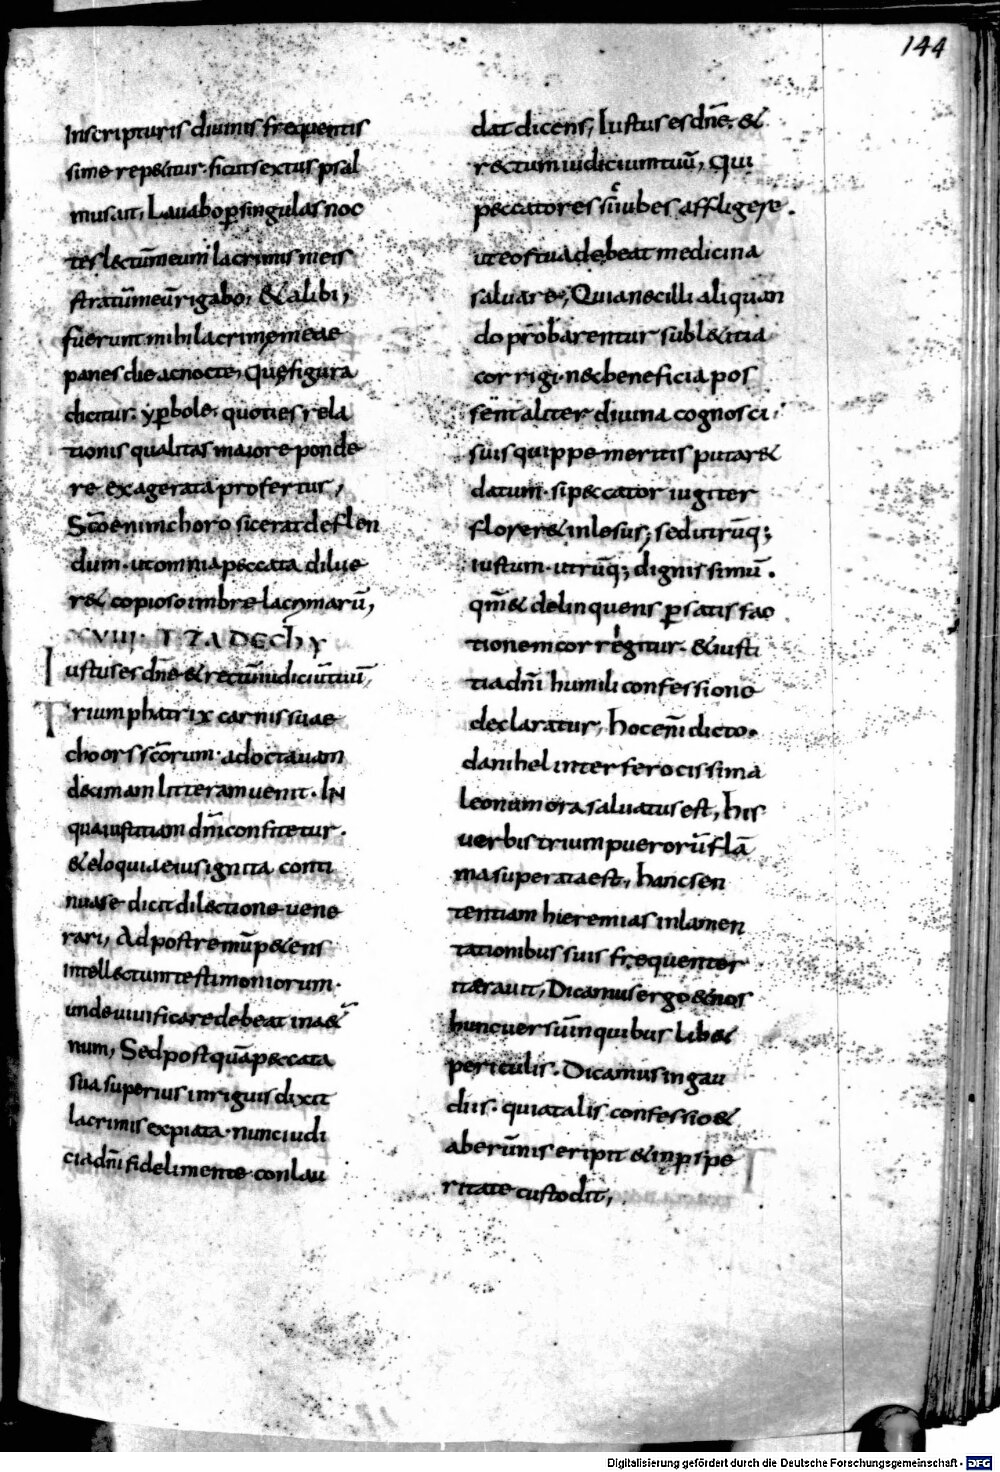 144
Inscripturis diuinis frequentis
sime rep&itur. sicut sextus psal
mus. ut, Lauabo p̱singulas noc
tes l&tūmeum lacrimis meis
stratūmeūrigabo, &alibi,
fuerunt mihi lacrimę meae
panes die acnocte, Quęfigura
dicitur. yp̱bole. quoties rela
tionis qualitas maiore ponde
re exagerata profertur,
Sc̄oenim choro sicerat deflen
dum. utomnia peccata dilue
r& copioso imbre lacrymarū,
XVIII. TZADECHY
Iustus es dn̄e &rectūiudiciūtuū,
Triumphatrix carnis suae
choors sc̄orum. adoctauam
decimam litteram uenit. IN
qua iustitiam dn̄i confitetur.
&eloquia eius ignita conti
nuase dicit dilectione uene
rari, Ad postremūp&ens
intellectum testimoniorum.
unde uiuificare debeat in a&̄
num, Sed post quāpeccata
sua superius inriguis dixit
lacrimis expiata. nunc iudi
ciadn̄i fideli mente conlau
dat dicens, Iustus es dn̄e. &
r&ctum iudicium tuū, Qui
peccatores sūiubes affligere.
uteos tua debeat medicina
saluare, Quia necilli aliquan
do probarentur subl&itia
corrigi. nec beneficia pos
sent aliter diuina cognosci.
suis quippe meritis putar&
datum. sipeccator iugiter
florer& inlesus, sed utrūq;
iustum. utrūq; dignissimū.
qm̄& delinquens p̱satisfac
tionem corrigitur. &iusti
tia dn̄i humili confessione
declaratur, hocenī dicto.
danihel inter ferocissima
leonum ora saluatus est, his
uerbis trium puerorūflā
ma superata est, hancsen
tentiam hieremias in lamen
tationibus suis frequenter
iterauit, Dicamus ergo &nos
hunc uersūin quibus lib&
periculis. Dicamus in gau
diis. quia talis confessio &
aberūnis eripit &inp̱spe
ritate custodit,
Digitalisierung gefördert durch die Deutsche Forschungsgemeinschaft - DFG